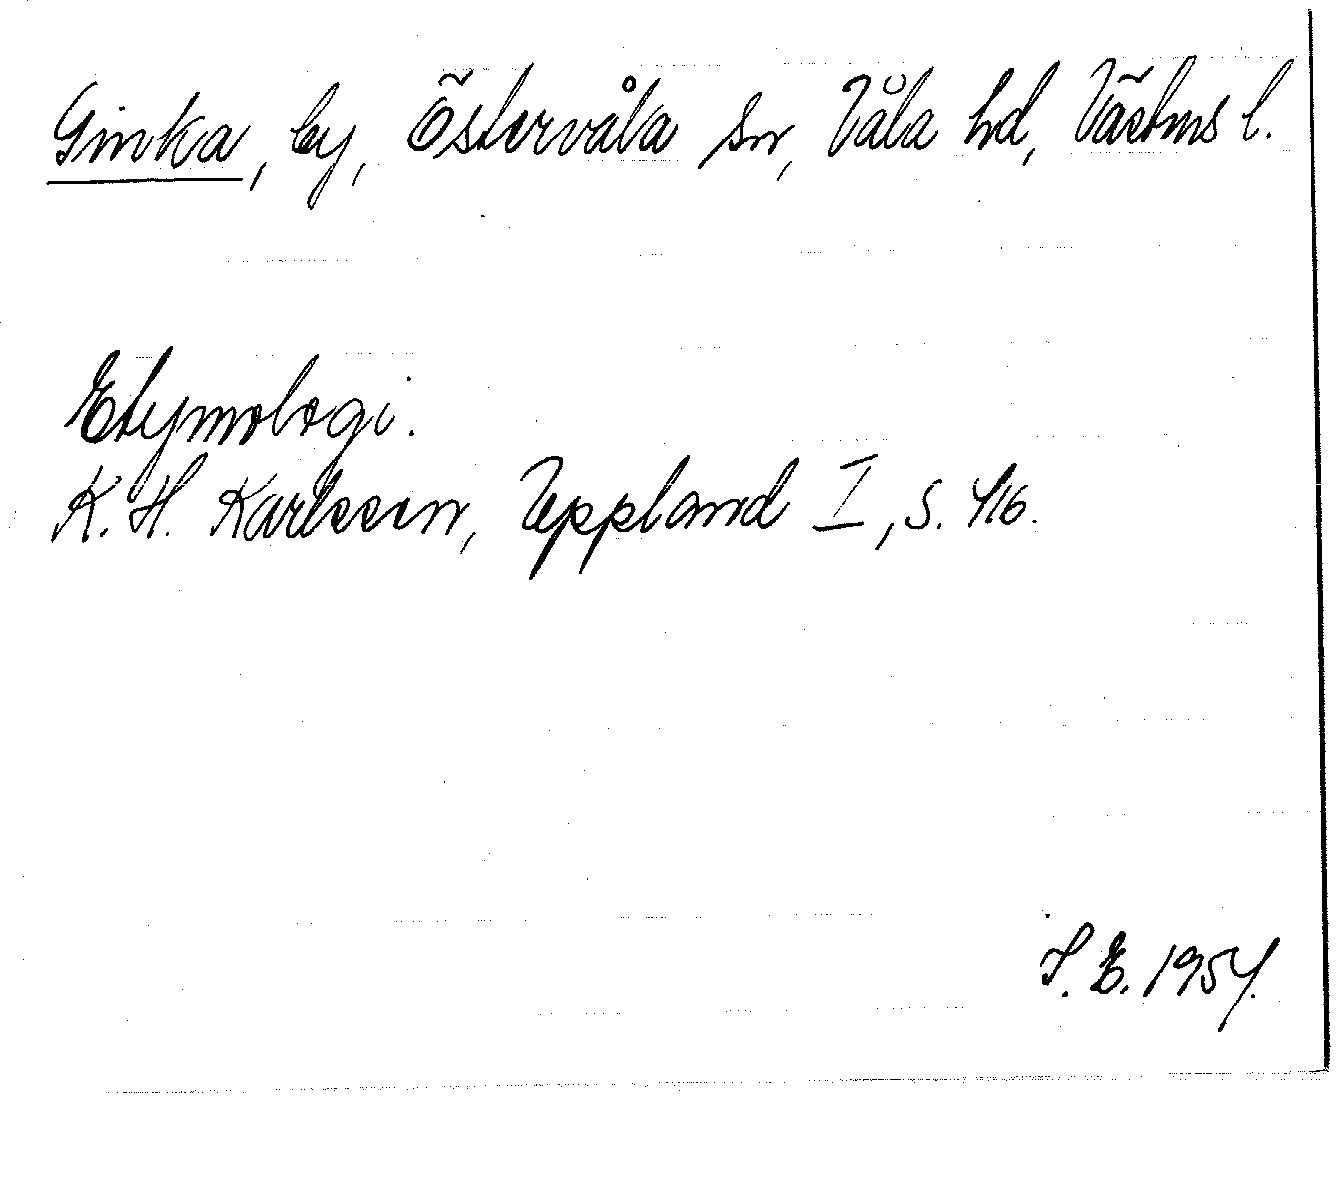 Ginka, by, Östervåla sn, Våla hd, Västms l.
Etymologi.
K. H. Karlsson, Uppland I, s. 416.
S. E. 1954.